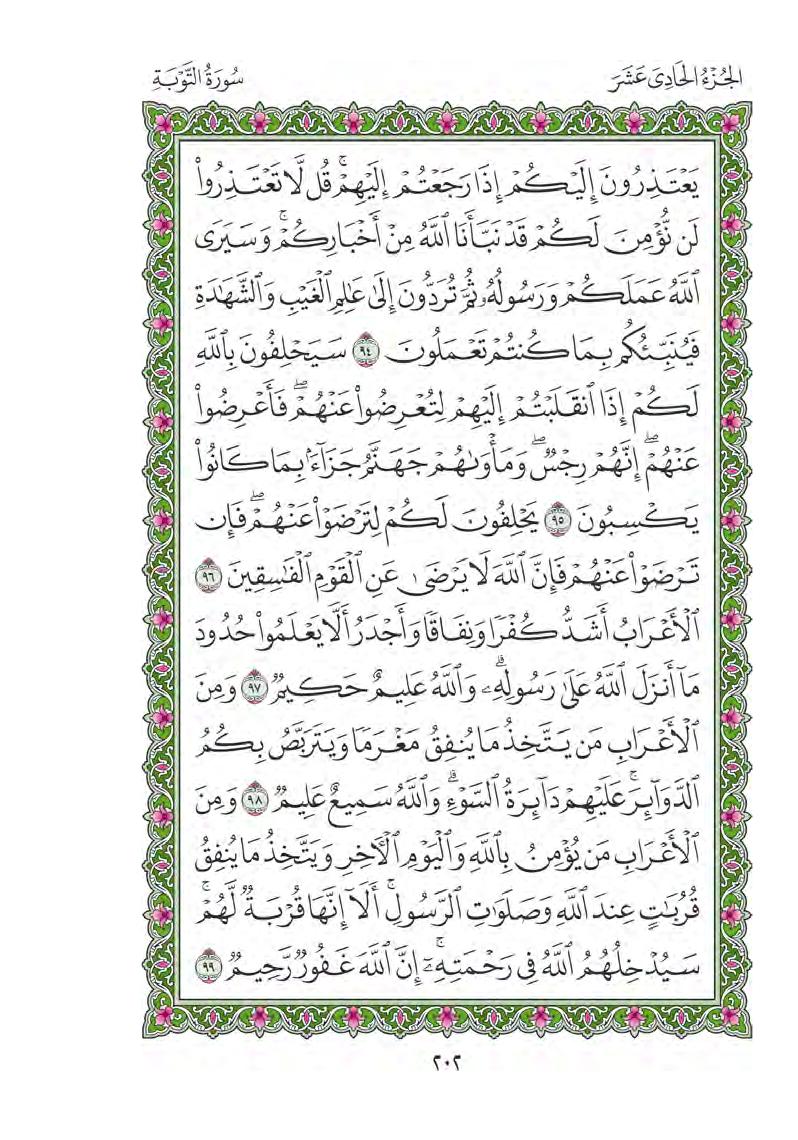 الجُزْءُ الحَادِى عَشَرَ
سُورَةُ التَّوْبَةِ
يَعْتَذِرُونَ إِلَيْكُمْ إِذَا رَجَعْتُمْ إِلَيْهِمْۚ قُل لَّا تَعْتَذِرُواْ
لَن نُّؤْمِنَ لَكُمْ قَدْ نَبَّأَنَا ٱللَّهُ مِنْ أَخْبَارِكُمْۚ وَسَيَرَى
ٱللَّهُ عَمَلَكُمْ وَرَسُولُهُۥ ثُمَّ تُرَدُّونَ إِلَىٰ عَٰلِمِ ٱلْغَيْبِ وَٱلشَّهَٰدَةِ
فَيُنَبِّئُكُم بِمَا كُنتُمْ تَعْمَلُونَ ٩٤ سَيَحْلِفُونَ بِٱللَّهِ
لَكُمْ إِذَا ٱنقَلَبْتُمْ إِلَيْهِمْ لِتُعْرِضُواْ عَنْهُمْۖ فَأَعْرِضُواْ
عَنْهُمْۖ إِنَّهُمْ رِجْسٌۖ وَمَأْوَىٰهُمْ جَهَنَّمُ جَزَآءَۢ بِمَا كَانُواْ
يَكْسِبُونَ ٩٥ يَحْلِفُونَ لَكُمْ لِتَرْضَوْاْ عَنْهُمْۖ فَإِن
تَرْضَوْاْ عَنْهُمْ فَإِنَّ ٱللَّهَ لَا يَرْضَىٰ عَنِ ٱلْقَوْمِ ٱلْفَٰسِقِينَ ٩٦
ٱلْأَعْرَابُ أَشَدُّ كُفْرًا وَنِفَاقًا وَأَجْدَرُ أَلَّا يَعْلَمُواْ حُدُودَ
مَآ أَنزَلَ ٱللَّهُ عَلَىٰ رَسُولِهِۦۗ وَٱللَّهُ عَلِيمٌ حَكِيمٌ ٩٧ وَمِنَ
ٱلْأَعْرَابِ مَن يَتَّخِذُ مَا يُنفِقُ مَغْرَمًا وَيَتَرَبَّصُ بِكُمُ
ٱلدَّوَآئِرَۚ عَلَيْهِمْ دَآئِرَةُ ٱلسَّوْءِۗ وَٱللَّهُ سَمِيعٌ عَلِيمٌ ٩٨ وَمِنَ
ٱلْأَعْرَابِ مَن يُؤْمِنُ بِٱللَّهِ وَٱلْيَوْمِ ٱلْأٓخِرِ وَيَتَّخِذُ مَا يُنفِقُ
قُرُبَٰتٍ عِندَ ٱللَّهِ وَصَلَوَٰتِ ٱلرَّسُولِۚ أَلَآ إِنَّهَا قُرْبَةٌ لَّهُمْۚ
سَيُدْخِلُهُمُ ٱللَّهُ فِى رَحْمَتِهِۦٓۚ إِنَّ ٱللَّهَ غَفُورٌ رَّحِيمٌ ٩٩
٢٠٢